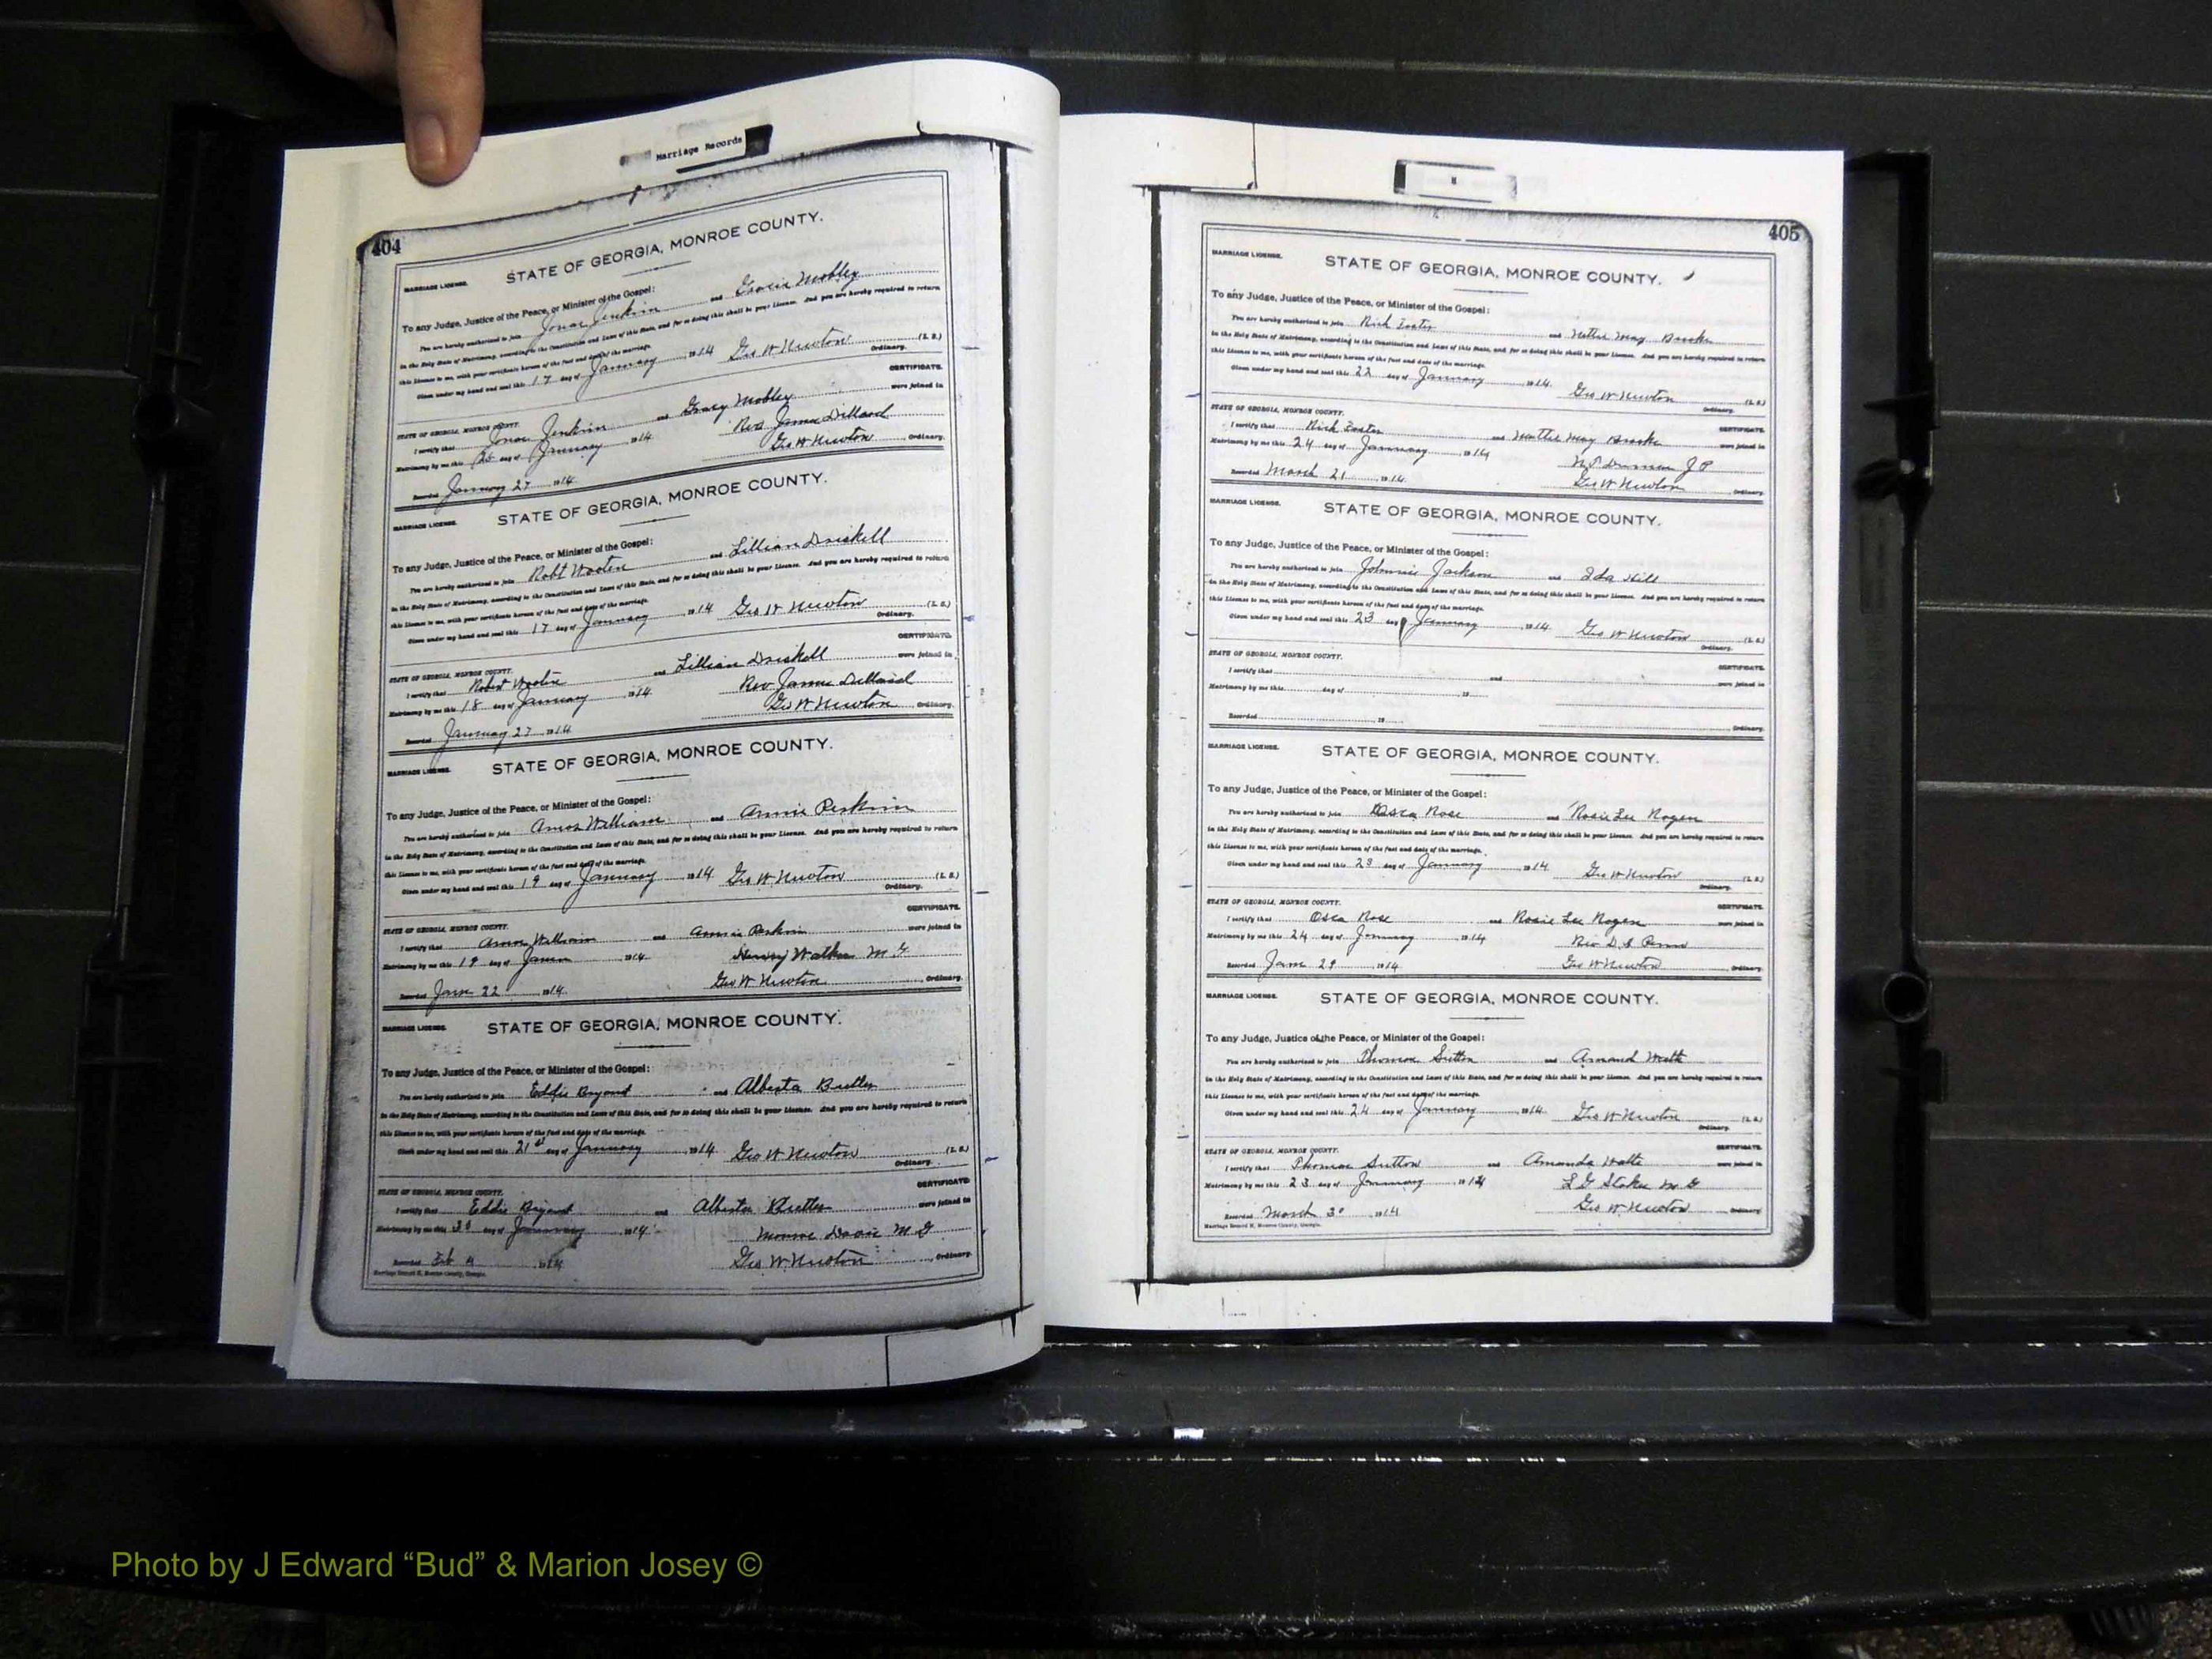 Marriage Records
404
MARRIAGE LICENSE.
STATE OF GEORGIA, MONROE COUNTY.
To any Judge, Justice of the Peace, or Minister of the Gospel:
You are hereby authorized to join Jonas Jenkins and Gracie Mobley
in the Holy State of Matrimony, according to the Constitution and Laws of this State, and for so doing this shall be your License. And you are hereby required to return
this License to me, with your certificate hereon of the fact and date of the marriage.
Given under my hand and seal this 17 day of January 1914 Geo W Newton (L. S.)
Ordinary.
CERTIFICATE.
STATE OF GEORGIA, MONROE COUNTY.
I certify that Jonas Jenkins and Gracy Mobley were joined in
Matrimony by me this day of January 1914 Rev James Dillard
Recorded January 27 1914 Geo W Newton, Ordinary.
MARRIAGE LICENSE.
STATE OF GEORGIA, MONROE COUNTY.
To any Judge, Justice of the Peace, or Minister of the Gospel:
You are hereby authorized to join Robt Wooten and Lillian Driskell
in the Holy State of Matrimony, according to the Constitution and Laws of this State, and for so doing this shall be your License. And you are hereby required to return
this License to me, with your certificate hereon of the fact and date of the marriage.
Given under my hand and seal this 17 day of January 1914 Geo W Newton (L. S.)
Ordinary.
CERTIFICATE.
STATE OF GEORGIA, MONROE COUNTY.
I certify that Robert Wooten and Lillian Driskell were joined in
Matrimony by me this 18 day of January 1914 Rev James Dillard
Recorded January 27 1914 Geo W Newton, Ordinary.
MARRIAGE LICENSE.
STATE OF GEORGIA, MONROE COUNTY.
To any Judge, Justice of the Peace, or Minister of the Gospel:
You are hereby authorized to join Amos William and Annie Perkins
in the Holy State of Matrimony, according to the Constitution and Laws of this State, and for so doing this shall be your License. And you are hereby required to return
this License to me, with your certificate hereon of the fact and date of the marriage.
Given under my hand and seal this 19 day of January 1914 Geo W Newton (L. S.)
Ordinary.
CERTIFICATE.
STATE OF GEORGIA, MONROE COUNTY.
I certify that Amos William and Annie Perkins were joined in
Matrimony by me this 19 day of 1914 Henry Walker M G
Recorded Jan 22 1914 Geo W Newton, Ordinary.
MARRIAGE LICENSE.
STATE OF GEORGIA, MONROE COUNTY.
To any Judge, Justice of the Peace, or Minister of the Gospel:
You are hereby authorized to join Eddie Bryant and Alberta Butler
in the Holy State of Matrimony, according to the Constitution and Laws of this State, and for so doing this shall be your License. And you are hereby required to return
this License to me, with your certificate hereon of the fact and date of the marriage.
Given under my hand and seal this 21st day of January 1914 Geo W Newton (L. S.)
Ordinary.
CERTIFICATE
STATE OF GEORGIA, MONROE COUNTY.
I certify that Eddie Bryant and Alberta Butler were joined in
Matrimony by me this day of January 1914 Monroe Davis M G
Recorded Feb 4 1914 Geo W Newton, Ordinary.
Marriage Record K, Monroe County, Georgia.
405
MARRIAGE LICENSE.
STATE OF GEORGIA, MONROE COUNTY.
To any Judge, Justice of the Peace, or Minister of the Gospel:
You are hereby authorized to join Rich Foster and May Brooks
in the Holy State of Matrimony, according to the Constitution and Laws of this State, and for so doing this shall be your License. And you are hereby required to return
this License to me, with your certificate hereon of the fact and date of the marriage.
Given under my hand and seal this 22 day of January 1914.
Geo W Newton (L. S.)
Ordinary.
CERTIFICATE.
STATE OF GEORGIA, MONROE COUNTY.
I certify that Rich Foster and Mattie May Brooks were joined in
Matrimony by me this 24 day of January 1914 J P
Recorded March 21 1914 Geo W Newton, Ordinary.
MARRIAGE LICENSE.
STATE OF GEORGIA, MONROE COUNTY.
To any Judge, Justice of the Peace, or Minister of the Gospel:
You are hereby authorized to join Johnnie Jackson and Ida Hill
in the Holy State of Matrimony, according to the Constitution and Laws of this State, and for so doing this shall be your License. And you are hereby required to return
this License to me, with your certificate hereon of the fact and date of the marriage.
Given under my hand and seal this 23 day of January 1914 Geo W Newton (L. S.)
Ordinary.
CERTIFICATE.
STATE OF GEORGIA, MONROE COUNTY.
I certify that and were joined in
Matrimony by me this day of 19
Recorded 19 Ordinary.
MARRIAGE LICENSE.
STATE OF GEORGIA, MONROE COUNTY.
To any Judge, Justice of the Peace, or Minister of the Gospel:
You are hereby authorized to join Osca Rose and Rosie Lee Rogers
in the Holy State of Matrimony, according to the Constitution and Laws of this State, and for so doing this shall be your License. And you are hereby required to return
this License to me, with your certificate hereon of the fact and date of the marriage.
Given under my hand and seal this 23 day of January 1914 Geo W Newton (L. S.)
Ordinary.
CERTIFICATE.
STATE OF GEORGIA, MONROE COUNTY.
I certify that Osca Rose and Rosie Lee Rogers were joined in
Matrimony by me this 24 day of January 1914 Rev D. S. Penn
Recorded Jan 29 1914 Geo W Newton, Ordinary.
MARRIAGE LICENSE.
STATE OF GEORGIA, MONROE COUNTY.
To any Judge, Justice of the Peace, or Minister of the Gospel:
You are hereby authorized to join Thomas Sutton and Amand
in the Holy State of Matrimony, according to the Constitution and Laws of this State, and for so doing this shall be your License. And you are hereby required to return
this License to me, with your certificate hereon of the fact and date of the marriage.
Given under my hand and seal this 24 day of January 1914 Geo W Newton (L. S.)
Ordinary.
CERTIFICATE.
STATE OF GEORGIA, MONROE COUNTY.
I certify that Thomas Sutton and Amanda Watts were joined in
Matrimony by me this 23 day of January 1914 L G Stokes M G
Recorded March 30 1914 Geo W Newton, Ordinary.
Marriage Record K, Monroe County, Georgia.
Photo by J Edward “Bud” & Marion Josey ©